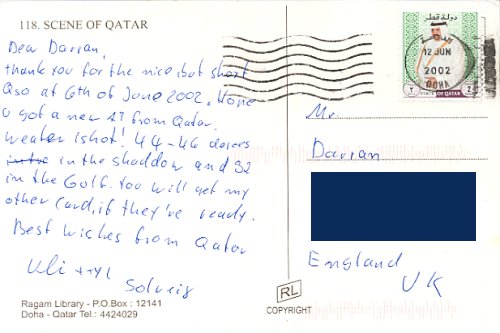 118. SCENE OF QATAR
Dear Darran,
thank you for the nice but short
Qso at 6th of June 2002. Hope
u got a new #1 from Qatar.
Weater is hot! 44-46 degrees
in the shaddow and 32
in the Golf. You will get my
other Card, if they've ready.
Best wishes from Qatar
Uli + XYL
Solveig
Ragam Library - P.O.Box : 12141
Doha - Qatar Tel.: 4424029
دولة قطر
الدوحة
12 JUN
2002
DOHA
٢
STATE OF QATAR
2
Mr.
Darran
England
UK
RL
COPYRIGHT